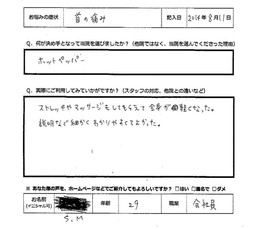 お悩みの症状 首の痛み 記入日 2014年8月1日
Q．何が決め手となって当院を選びましたか？（他院ではなく、当院を選んでくださった理由）
ホットペッパー
Q．実際にご利用してみていかがですか？（スタッフの対応、他院との違いなど）
ストレッチやマッサージをしてもらえて全身が軽くなった。
説明など細かくわかりやすくてよかった。
※ あなた様の声を、ホームページなどでご紹介してもよろしいですか？ □はい □匿名で □ダメ
お名前 （イニシャル可） 年齢 29 職業 会社員
S.M